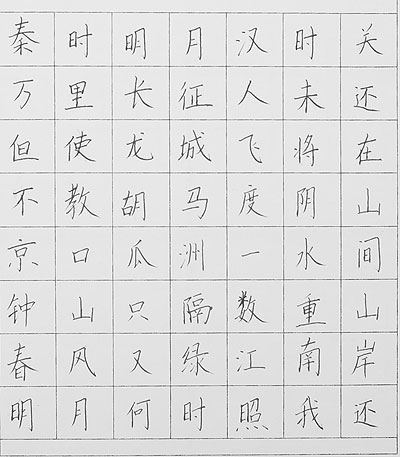 秦时明月汉时关
万里长征人未还
但使龙城飞将在
不教胡马度阴山
京口瓜洲一水间
钟山只隔数重山
春风又绿江南岸
明月何时照我还